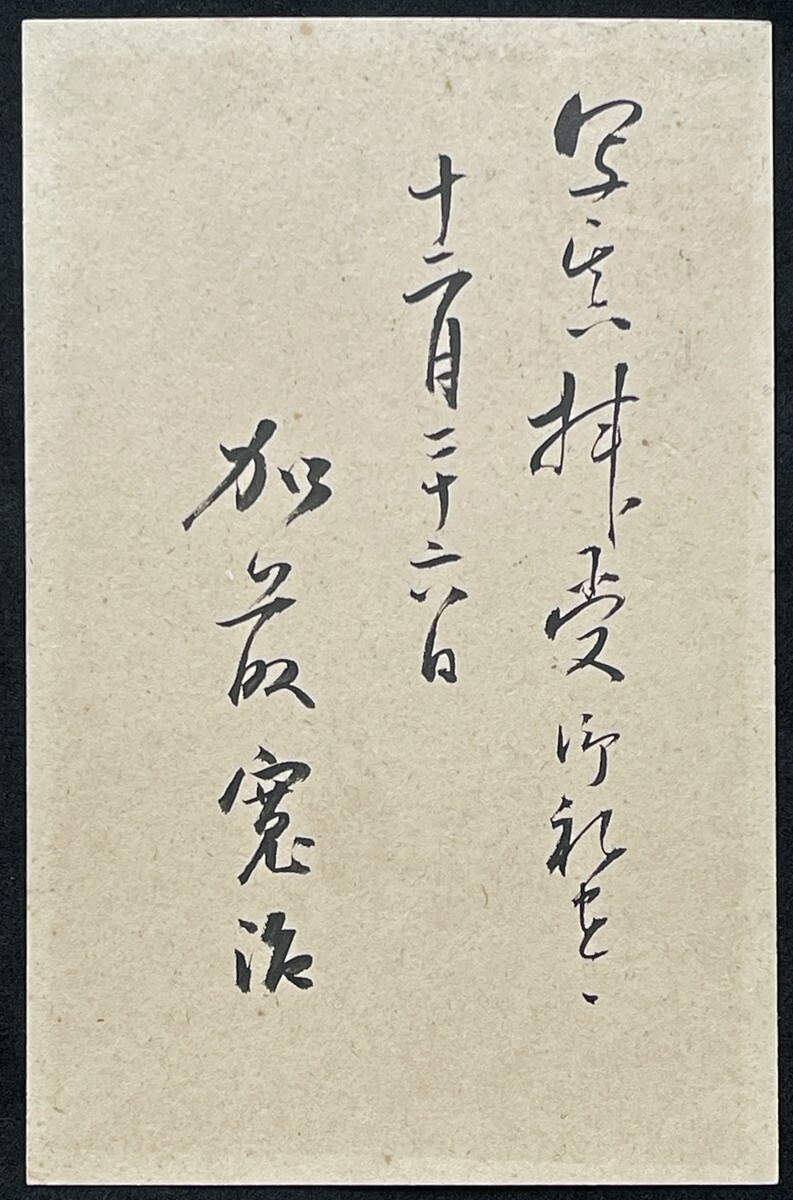 写真拝受御礼迄
十二月二十六日
加藤寛治